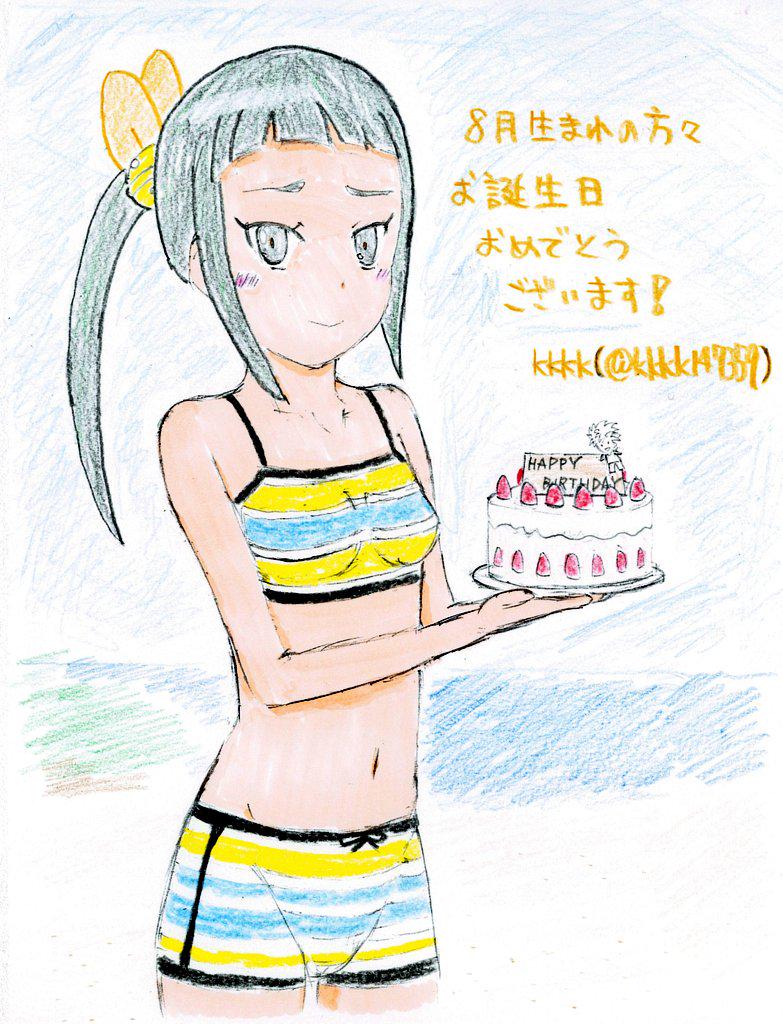 8月生まれの方々
お誕生日
おめでとう
ございます!
kkkk(@kkkk147359)
HAPPY
BIRTHDAY